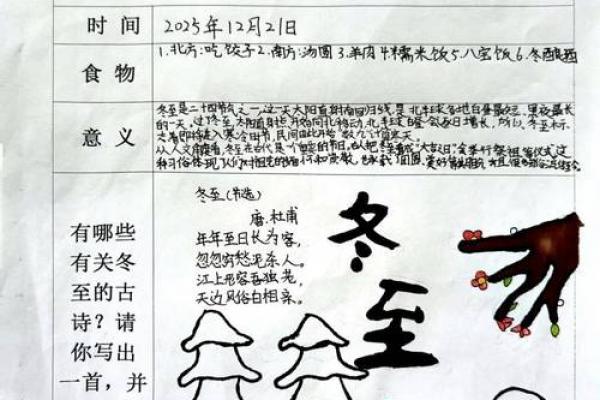 时 间
2025年12月21日
食 物
1.北方:吃饺子2.南方:汤圆 3.羊肉 4.糯米饭5.八宝饭6.冬酿酒
意 义
冬至是二十四节气之一,这一天太阳直射南回归线,是北半球各地白昼最短、黑夜最长
的一天。过冬至太阳直射点开始向北移动,北半球白昼会逐日增长,所以冬至标
志着即将进入寒冷时节,民间由此开始"数九"计算寒天。
从人文角度看,冬至在古代是个重要的节日,古人把冬至看成"大吉日"会举行祭祖等仪式这
种习俗体现了人们对祖先的 和崇敬,
有哪些
有关冬
至的古
诗?请
你写出
一首,并
冬至(节选)
唐.杜甫
年年至日长为客,
忽忽穷愁泥杀人。
江上形容吾独老,
天边风俗自相亲。
冬至